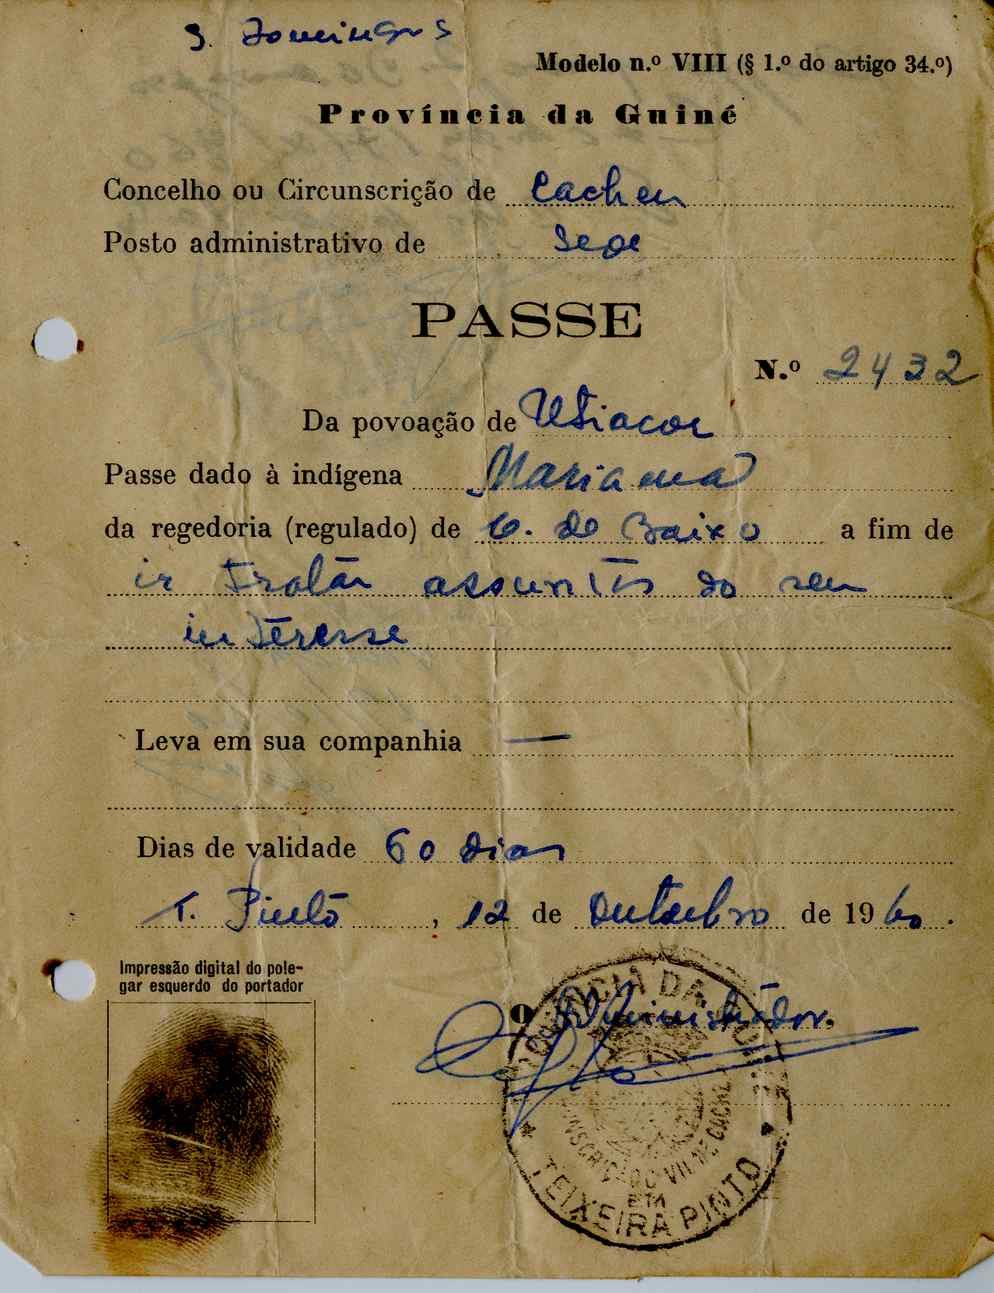 S. Domingos
Modelo n.º VIII (§ 1.º do artigo 34.º)
Província da Guiné
Concelho ou Circunscrição de Cacheu
Posto administrativo de Sede
PASSE
N.º 2432
Da povoação de Utiacor
Passe dado à indígena Mariama
da regedoria (regulado) de C. de Baixo a fim de
ir tratar assuntos do seu
interesse
Leva em sua companhia —
Dias de validade 60 dias
T. Pinto, 12 de Outubro de 1960.
Impressão digital do pole-
gar esquerdo do portador
O Administrador.
PROVÍNCIA DA GUINÉ
TEIXEIRA PINTO